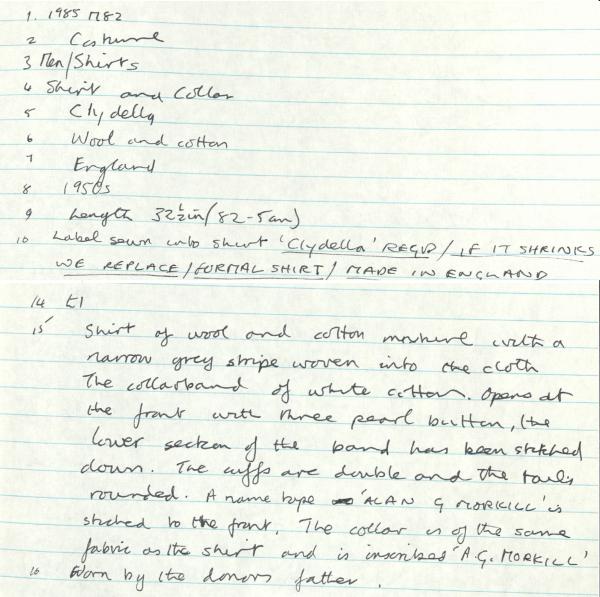 1. 1985 M82
2 Costume
3 Men/Shirts
4 Shirt and Collar
5 Clydella
6 Wool and cotton
7 England
8 1950s
9 Length 32½in (82-5cm)
10 Label sewn into shirt 'Clydella' REGD / IF IT SHRINKS
WE REPLACE / FORMAL SHIRT / MADE IN ENGLAND
14 £1
15 Shirt of wool and cotton mixture with a
narrow grey stripe woven into the cloth
The collarband of white cotton. Opens at
the front with three pearl button, the
lower section of the band has been stitched
down. The cuffs are double and the tails
rounded. A name tape 'ALAN G MORKILL' is
stitched to the front. The collar is of the same
fabric as the shirt and is inscribed 'A.G. MORKILL'
16 Worn by the donors father.